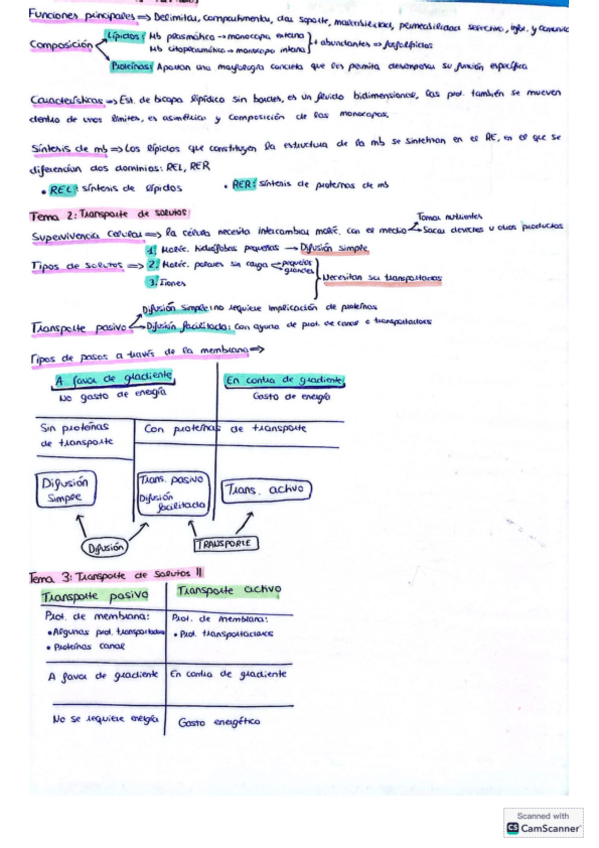 Funciones principales => Delimitar, compartimentar, dar soporte, maleabilidad, permeabilidad selectiva,
Composición
Lípidos: Mb plasmática → monocapa externa
Mb citoplasmática → monocapa interna
+ abundantes => fosfolípidos
Proteínas: Aportan una morfología concreta que les permita desempeñar su función específica
Características => Est. de bicapa lipídica sin bordes, es un fluido bidimensional, las prot. también se mueven
dentro de unos límites, es asimétrico y composición de las monocapas.
Síntesis de mb => Los lípidos que constituyen la estructura de la mb se sintetizan en el RE, en el que se
diferencian dos dominios: REL, RER
• REL: síntesis de lípidos
• RER: síntesis de proteínas de mb
Tema 2: Transporte de solutos:
Tomar nutrientes
Supervivencia celular => la célula necesita intercambiar moléc. con el medio
Sacar desechos u otros productos
1. Moléc. hidrófobas pequeñas → Difusión simple
Tipos de solutos => 2. Moléc. polares sin carga
pequeños
grandes
3. Iones
Necesitan ser transportados
Difusión simple: no requiere implicación de proteínas
Transporte pasivo
Difusión facilitada: Con ayuda de prot. de canal o transportadoras
Tipos de pasos a través de la membrana =>
A favor de gradiente
No gasto de energía
En contra de gradiente
Gasto de energía
Sin proteínas
de transporte
Con proteínas de transporte
Difusión
simple
Trans. pasivo
Difusión
facilitada
Trans. activo
Difusión
TRANSPORTE
Tema 3: Transporte de solutos II
Transporte pasivo
Transporte activo
Prot. de membrana:
• Algunas prot. transportadoras
• Proteínas canal
Prot. de membrana:
• Prot. transportadoras
A favor de gradiente
En contra de gradiente
No se requiere energía
Gasto energético
Scanned with
CS CamScanner